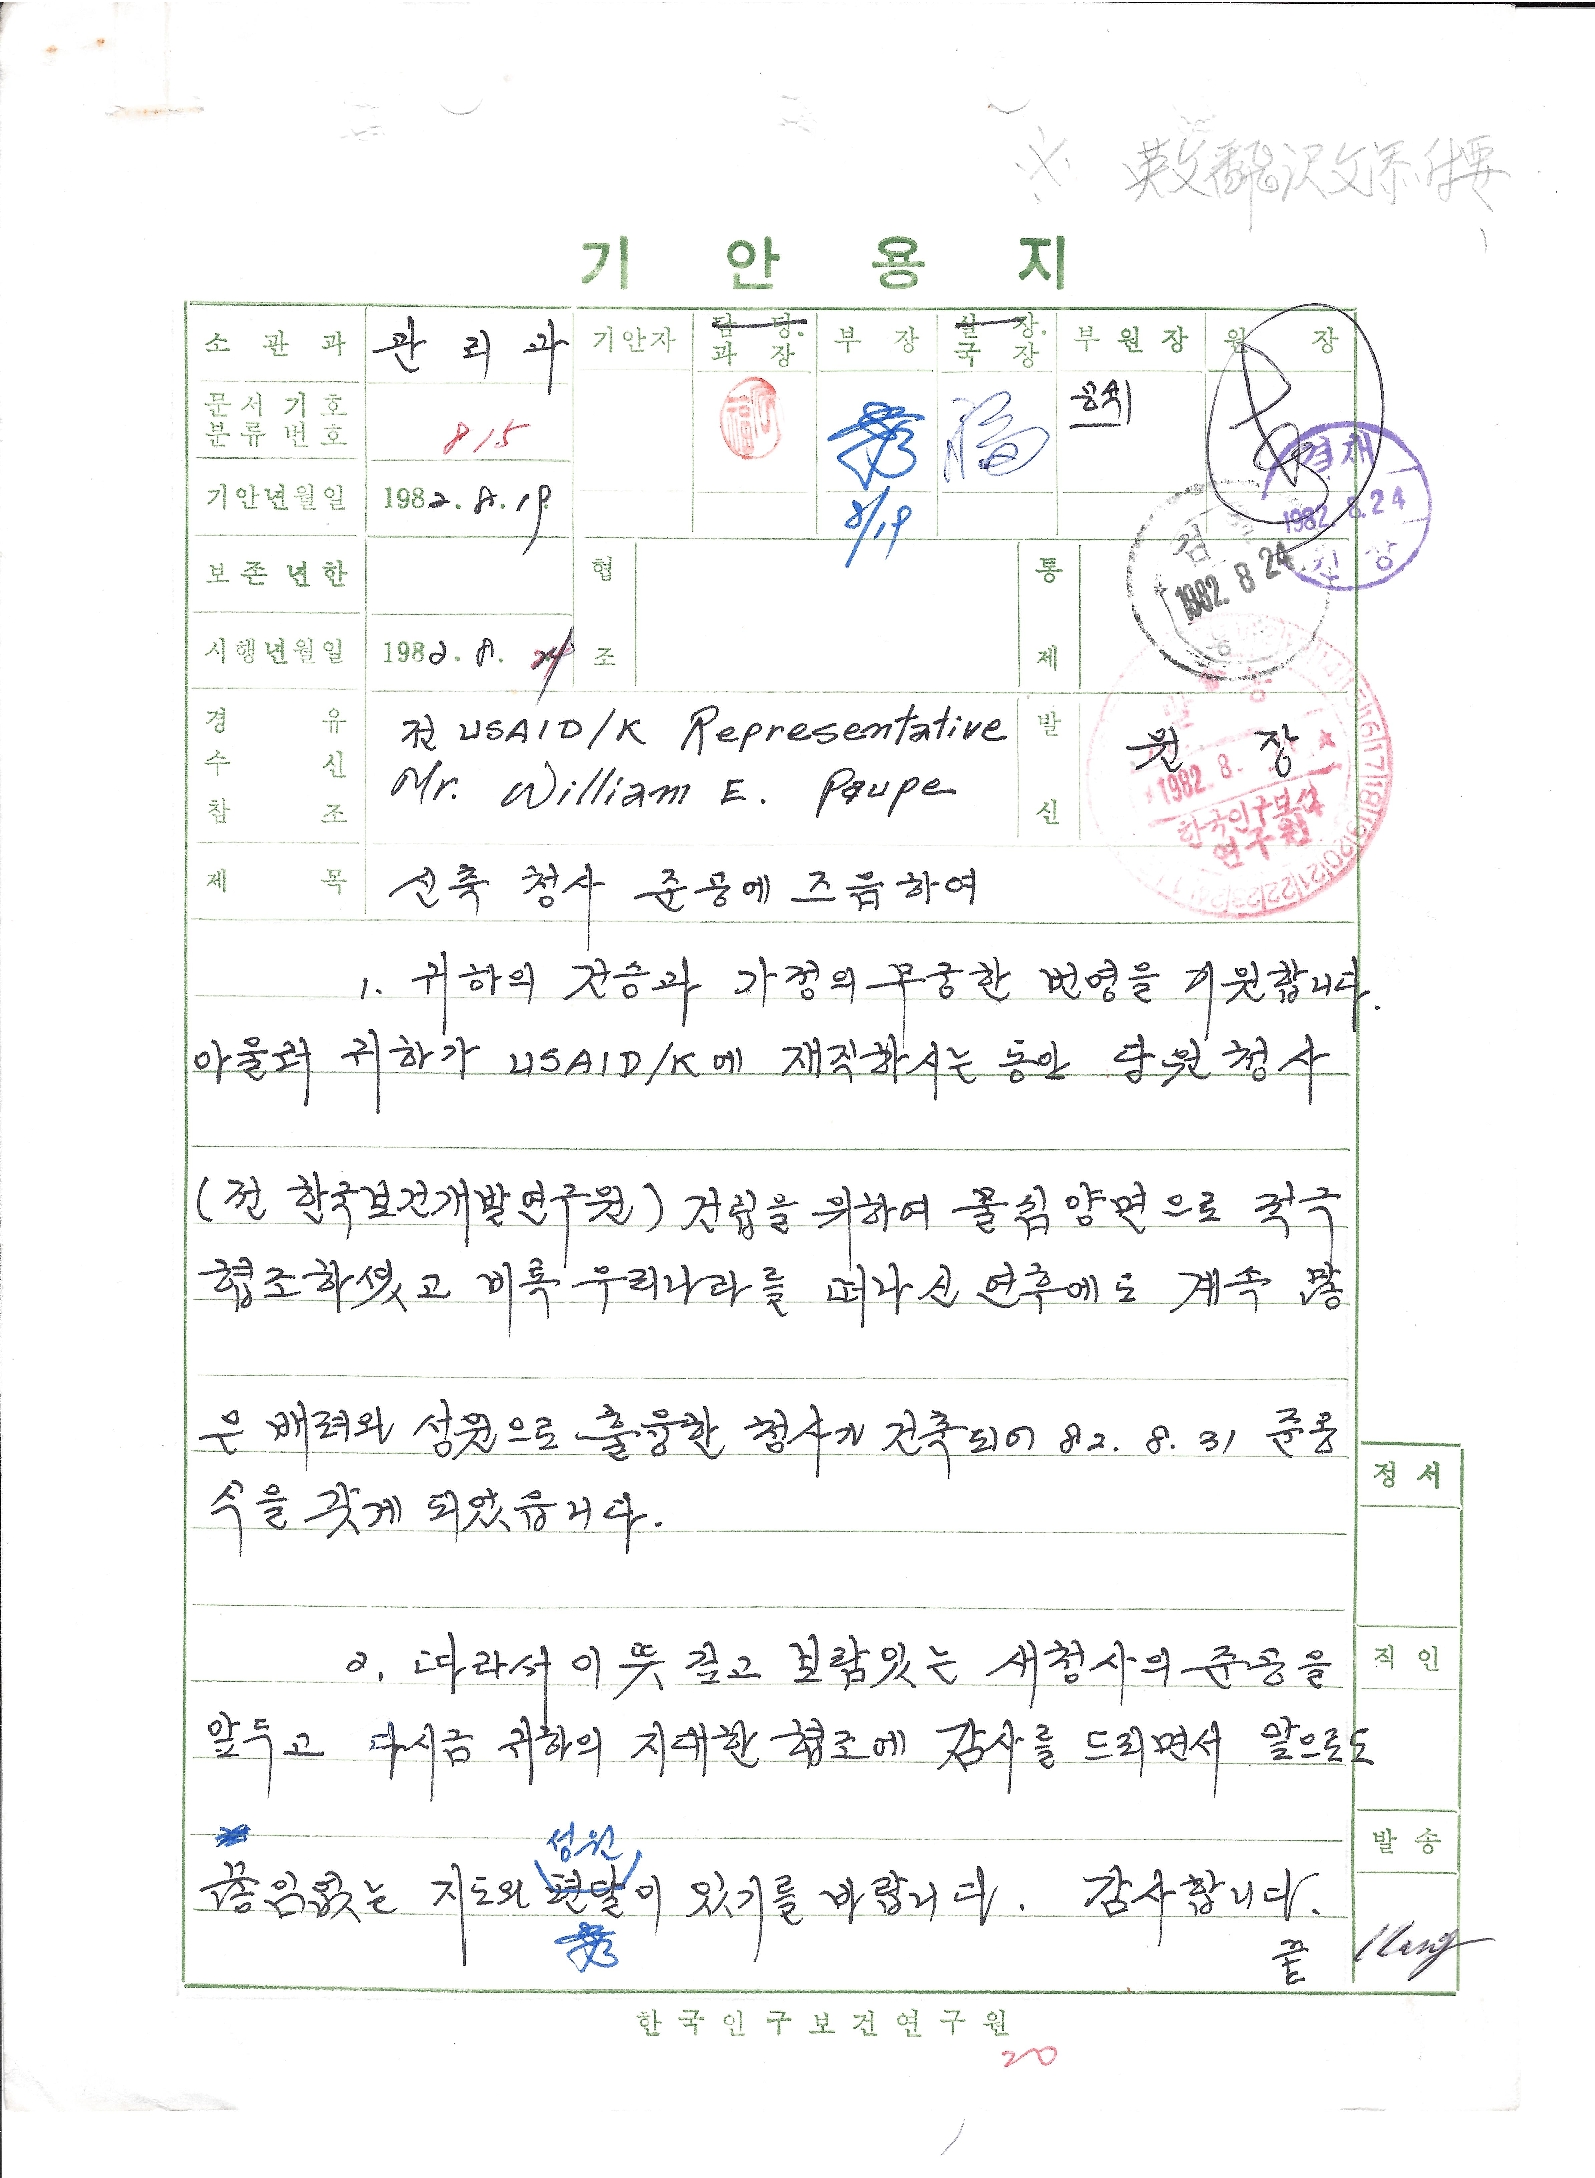 ※ 英文飜訳文添付要
기 안 용 지
소 관 과 관 리 과 기안자 담 당. 과 장 부 장 실 장. 국 장 부 원 장 원 장
문서기호
분류번호 815
공석
기안년월일 1982. 8. 19.
8/19
결재
1982. 8. 24
원 장
1982. 8 24
보존년한 협 통
시행년월일 1982. 8. 24 조 제
경 유 전 USAID/K Representative 발
수 신 Mr. William E. Paupe 원 장
참 조 신
1982. 8.
한국인구보건
연구원
제 목 신축 청사 준공에 즈음하여
1. 귀하의 건승과 가정의 무궁한 번영을 기원합니다.
아울러 귀하가 USAID/K에 재직하시는 동안 당원 청사
(전 한국보건개발연구원) 건립을 위하여 물심양면으로 적극
협조하셨고 비록 우리나라를 떠나신 연후에도 계속 많
은 배려와 성원으로 훌륭한 청사가 건축되어 82. 8. 31 준공
식을 갖게 되었읍니다.
정 서
2. 따라서 이 뜻 깊고 보람있는 새청사의 준공을
직 인
앞두고 다시금 귀하의 지대한 협조에 감사를 드리면서 앞으로도
발 송
성원
끊임없는 지도와 편달이 있기를 바랍니다. 감사합니다.
끝
한국인구보건연구원
20